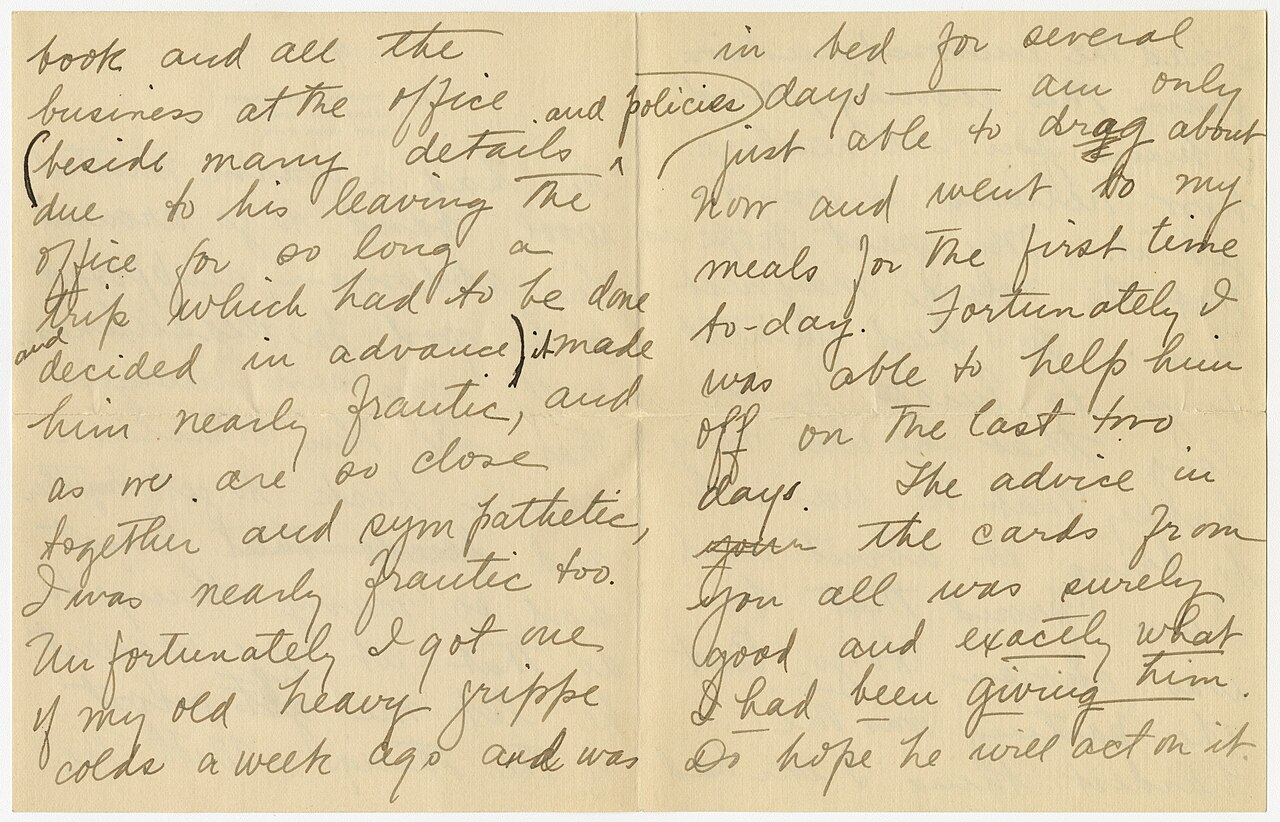 book and all the
business at the office
(beside many details ^ and policies
due to his leaving the
office for so long a
trip which had to be done
and decided in advance) it made
him nearly frantic, and
as we are so close
together and sympathetic,
I was nearly frantic too.
Unfortunately I got one
of my old heavy grippe
colds a week ago and was
in bed for several
days — am only
just able to drag about
now and went to my
meals for the first time
to-day. Fortunately I
was able to help him
off on the last two
days. The advice in
your the cards from
you all was surely
good and exactly what
I had been giving him.
Do hope he will act on it.